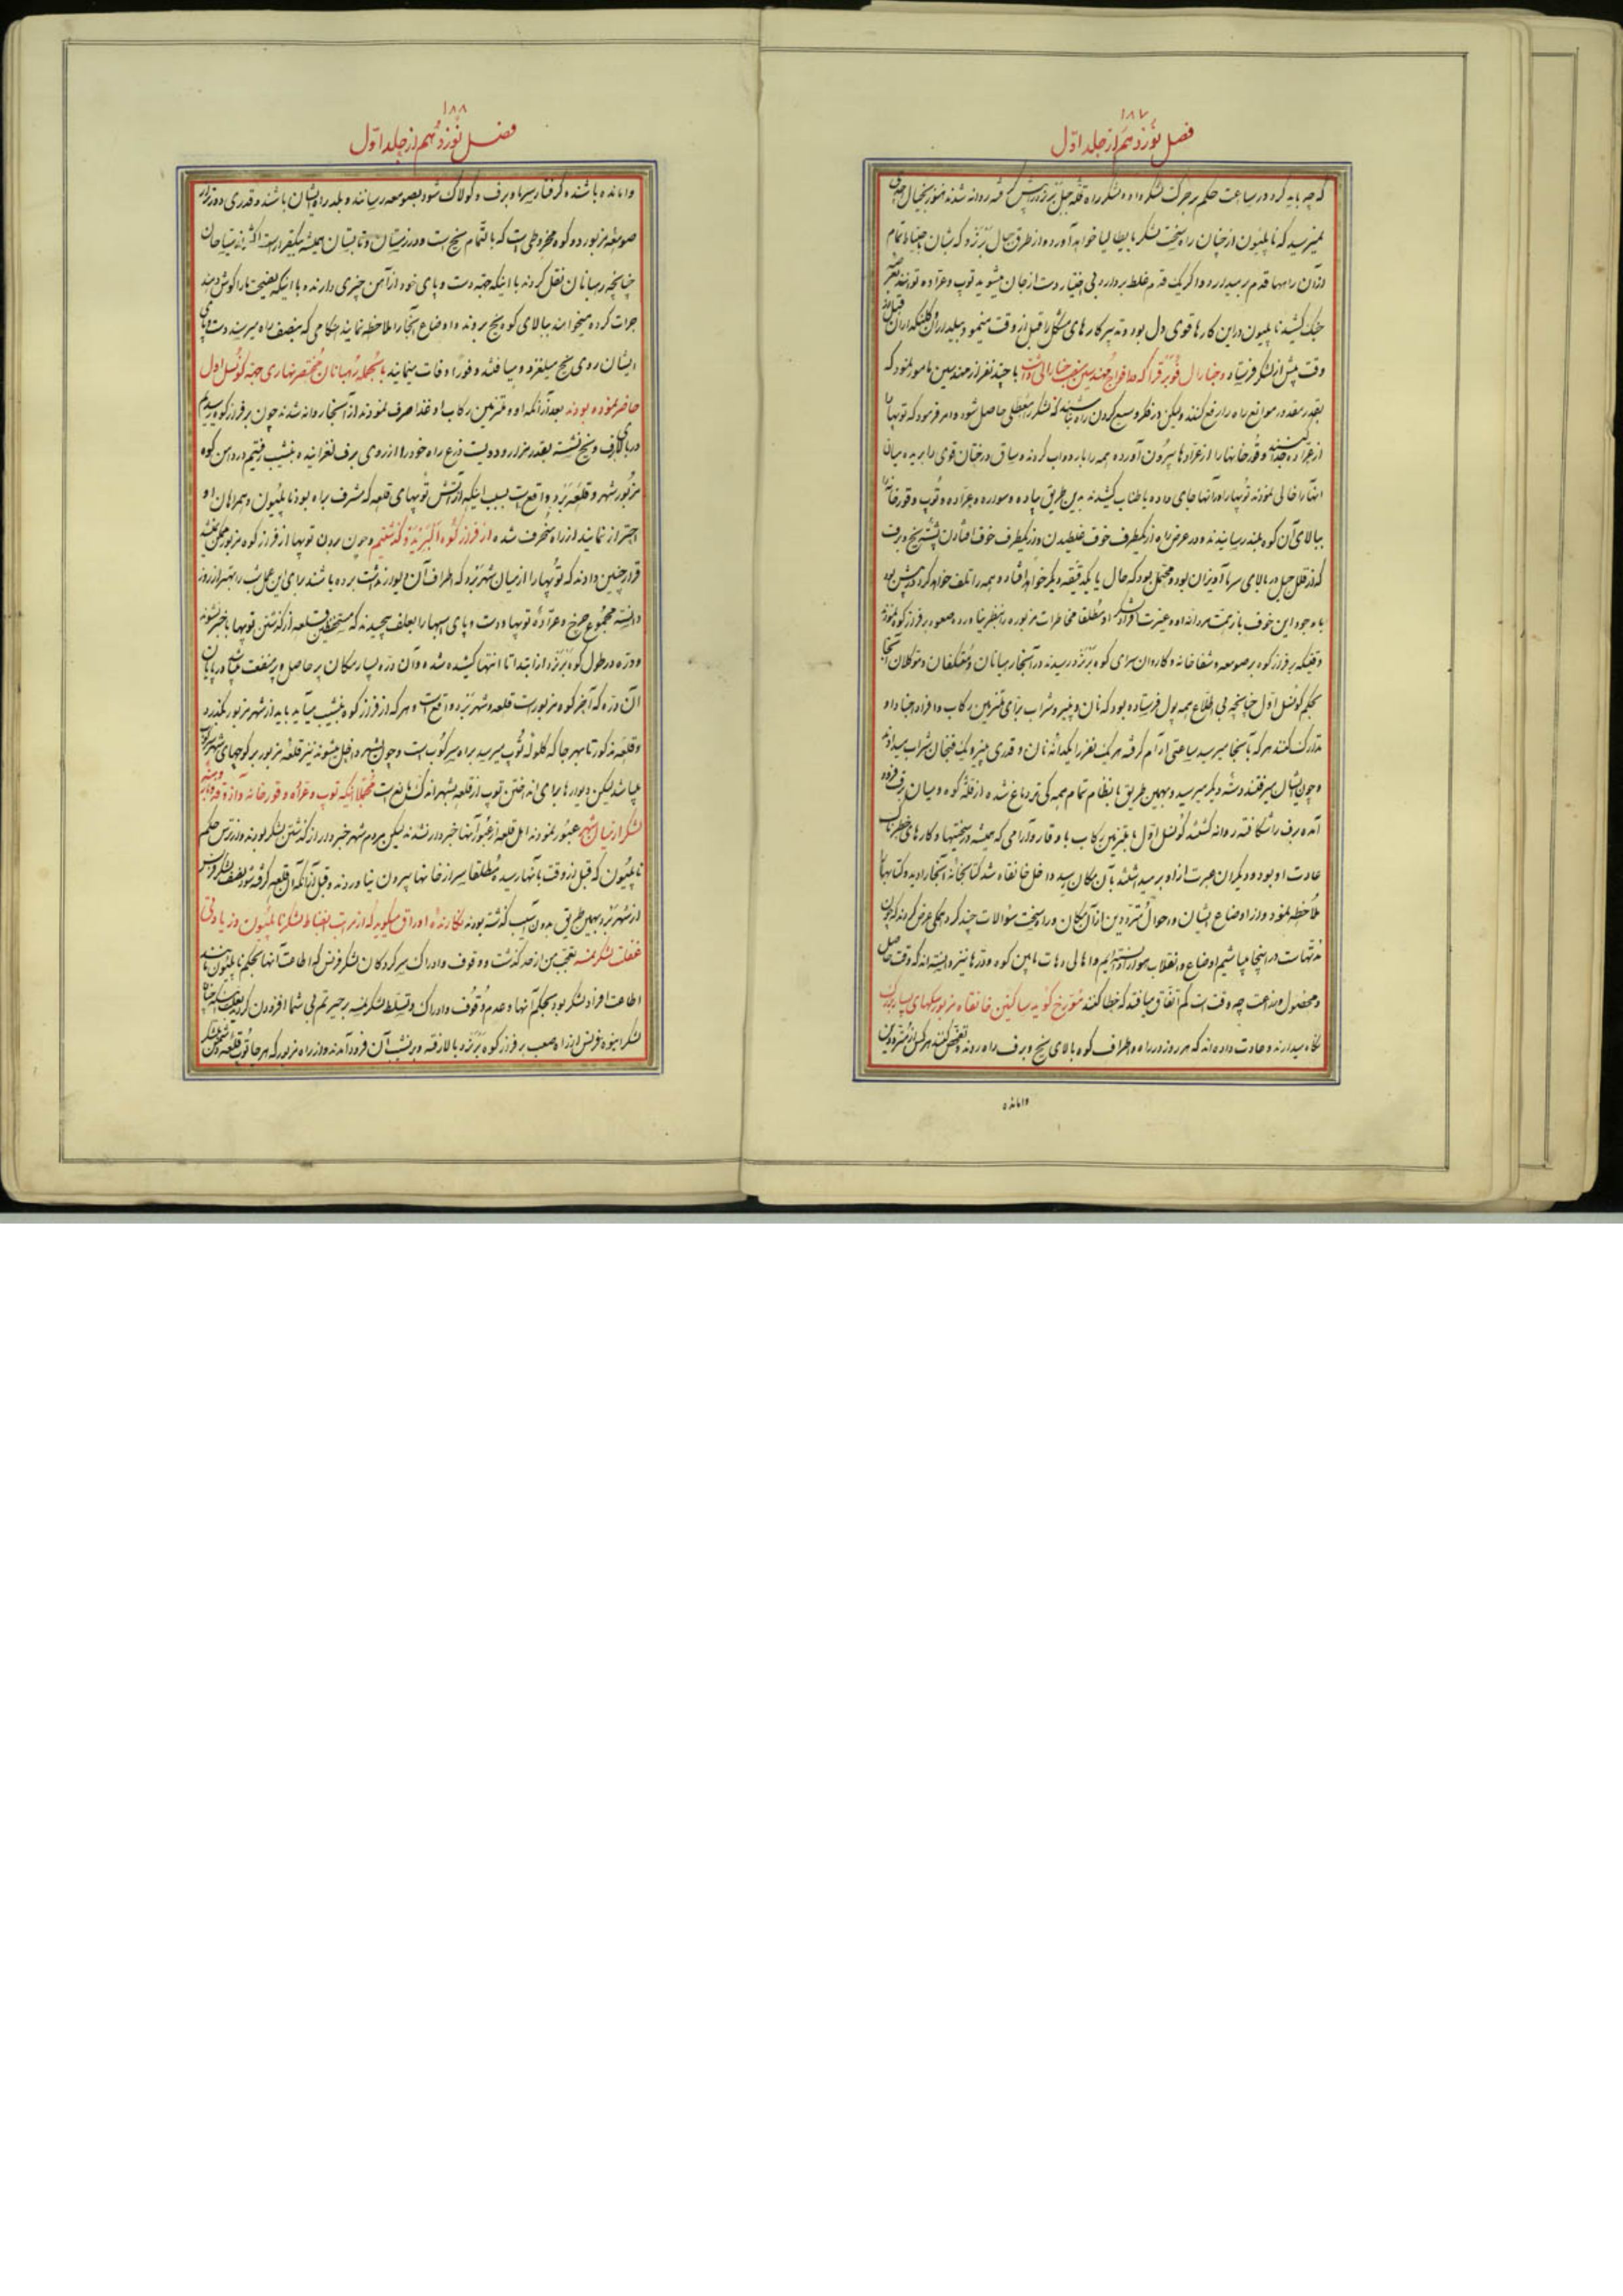 ۱۸۷
فصل نوزدهم از جلد اوّل
که چه باید کرد در ساعت حکم بر حرکت لشکر داده لشکر راه قلّه جبل برنرد پیش گرفته روانه شدند هنوز بخیال احدی
نمیرسید که ناپلیون از چنان راه سخت لشکر بایطالیا خواهد آورد و از طرق جبال برنرد که بآن احتیاط تمام
در آن راهها قدم بر میدارد و اگر یک قدم غلط بردارد بی اختیار دست از جان میشوید توپ و عرّاده
جنک کشید ناپلیون در این کارها قوی دل بود و تدبیر کارهای مشکل را قبل از وقت مینمود و بیلداران و کلنکداران
وقت پیش از لشکر فرستاد و جنارال
بقدر مقدور موانع راه را رفع کنند ولیکن در فکر وسیع کردن راه نباشند که لشکر را معطلی حاصل شود و امر فرمود که توپها را
از عرّاده جدا و قورخانها را از عرّادها بیرون آورده همه را بار دواب کردند و ساق درختان قوی را بریده میان
آنها را خالی نمودند توپها را در آنها جای داده با طناب کشیدند بدین طریق پیاده و سواره و عرّاده و توپ و قورخانه را
ببالای آن کوه بلند رسانیدند و در عرض راه از یکطرف خوف غلطیدن و از یکطرف خوف افتادن پشته یخ و برف
که از قلل جبل در بالای سر ما آویزان بود و محتمل بود که حال یا یکدقیقه دیگر خواهد افتاد و همه را تلف خواهد کرد در پیش بود
با وجود این خوف باز همت مردانه او و غیرت افراد لشکر او مطلقا مخاطرات مزبوره را بنظر نیاورده صعود بر فراز کوه نمودند
وقتیکه بر فراز کوه بر صومعه و شفاخانه و کاروان سرای کوه برنرد رسیدند در آنجا رهبانان و معتکفان و متوکلان آنجا
بحکم کونسل اوّل چنانچه بی اطلاع همه پول فرستاده بود که نان و پنیر و شراب برای ملتزمین رکاب و افراد اجناد او
تدارک کنند هر که بآنجا میرسید ساعتی آرام گرفته هر یک نفر را یکدانه نان و قدری پنیر و یک فنجان شراب میدادند
و چون ایشان میرفتند دسته دیگر میرسید و بهمین طریق با نظام تمام همه کی تر دماغ شده از قلّه کوه و میان برف فرود
آمده برف را شکافته روانه کشتند کونسل اوّل با ملتزمین رکاب با وقار و آرامی که همیشه در سختیها و کارهای خطرناک
عادت او بود و دیگران عبرت از او بر میداشتند بآن مکان رسید داخل خانقاه شد کتابخانه آنجا را دید و کتابها را
ملاحظه نمود و از اوضاع ایشان و احوال متردّدین از آن مکان و راه سخت سؤالات چند کرد همکی عرض کردند که چون
مدتهاست در اینجا میباشیم اوضاع و انقلاب هوا را دانسته ایم و اهالی دهات مابین کوه و درّها نیز دانسته اند که وقت حاصل
و محصول و زراعت چه وقت است کم اتّفاق میافتد که خطا کنند مورّخ کوید ساکنین خانقاه مزبور سکهای بسیار بزرک
نکاه میدارند و عادت داده اند که هر روز در راه و اطراف کوه بالای یخ و برف راه روند و تفحّص کنند هر کس از متردّدین
وامانده
۱۸۸
فصل نوزدهم از جلد اوّل
وامانده باشند و کرفتار سرما و برف و کولاک شود بصومعه رسانند و بلد راه ایشان باشند و قدری دورتر از
صومعه مزبور دو کوه مخروطی است که بالتّمام یخ است و در زمستان و تابستان همیشه بیکقرار است اکثر از سیّاحان
چنانچه رهبانان نقل کردند با اینکه جهة دست و پای خود از آهن چیزی دارند و با اینکه نصیحت ما را کوش دهند
جرات کرده میخواهند ببالای کوه یخ بروند و اوضاع آنجا را ملاحظه نمایند هنکامی که بنصف راه میرسند دست و پای
ایشان روی یخ میلغزد و میافتند و فورا وفات مینمایند بالجمله رهبانان مختصر نهاری جهة کونسل اول
حاضر نموده بودند بعد از آنکه او و ملتزمین رکاب او غذا صرف نمودند از آنجا روانه شدند چون بر فراز کوه رسیدیم
در بالای برف و یخ نشسته بقدر هزار و دویست ذرع راه خود را از روی برف لغزانیده بنشیب رفتیم در دامن کوه
مزبور شهر و قلعه برد واقع است بسبب اینکه از آتش توپهای قلعه که مشرف براه بود ناپلیون و همراهان او
احتراز نمایند از راه منحرف شده از فراز کوه البرند گذشتیم و چون بردن توپها از فراز کوه مزبور ممکن نمیشد
قرار چنین دادند که توپها را از میان شهر برد که اطراف آن دیوار نداشت برده باشند برای این عمل شب را بهتر از روز
دانسته مجموع چرخ و عرّاده توپها و دست و پای اسبها را بعلف پیچیدند که مستحفظین قلعه از گذشتن توپها با خبر نشوند
و درّه در طول کوه برنرد از ابتدا تا انتها کشیده شده و آن درّه بسیار مکان پر حاصل و پر منفعت میباشد و در پایان
آن درّه که آخر کوه مزبور است قلعه و شهر برد واقع است و هر که از فراز کوه بنشیب میآید باید از شهر مزبور بگذرد
و قلعه مذکور تا بهر جا که کلوله توپ میرسد براه سرکوب است و چون بشهر داخل میشوند نیز قلعه مزبور بر کوچهای شهر سرکوب
میباشد لیکن دیوارها برای انداختن توپ از قلعه بشهر اندک مانع است مجملا اینکه توپ و عرّاده و قورخانه و آذوقه
لشکر از میان شهر عبور نمودند اهل قلعه از عبور آنها خبردار نشدند لیکن مردم شهر خبردار از گذشتن لشکر بودند و از ترس حکم
ناپلیون که قبل از وقت بآنها رسیده مطلقا سر از خانها بیرون نیاوردند و قبل از آنکه آن قلعه گرفته شود نصف لشکر فرنس
از شهر برد بهمین طریق بدون آسیب گذشته بودند نکارنده اوراق میکوید که از مراتب انضباط لشکر ناپلیون و زیادتی
غفلت لشکر نمسه تعجّب من از حد گذشت و وقوف و ادراک سرکردکان لشکر فرنس که اطاعت آنها بحکم ناپلیون مانند
اطاعت افراد لشکر بود بحکم آنها و عدم وقوف و ادراک و تسلّط لشکر نمسه بر حیرتم بی شما افزودن کرد
لشکر انبوه فرنس از راه صعب بر فراز کوه برنرد بالا رفته و بر نشیب آن فرود آمدند و از راه مزبور که هر جا توپ قلعه